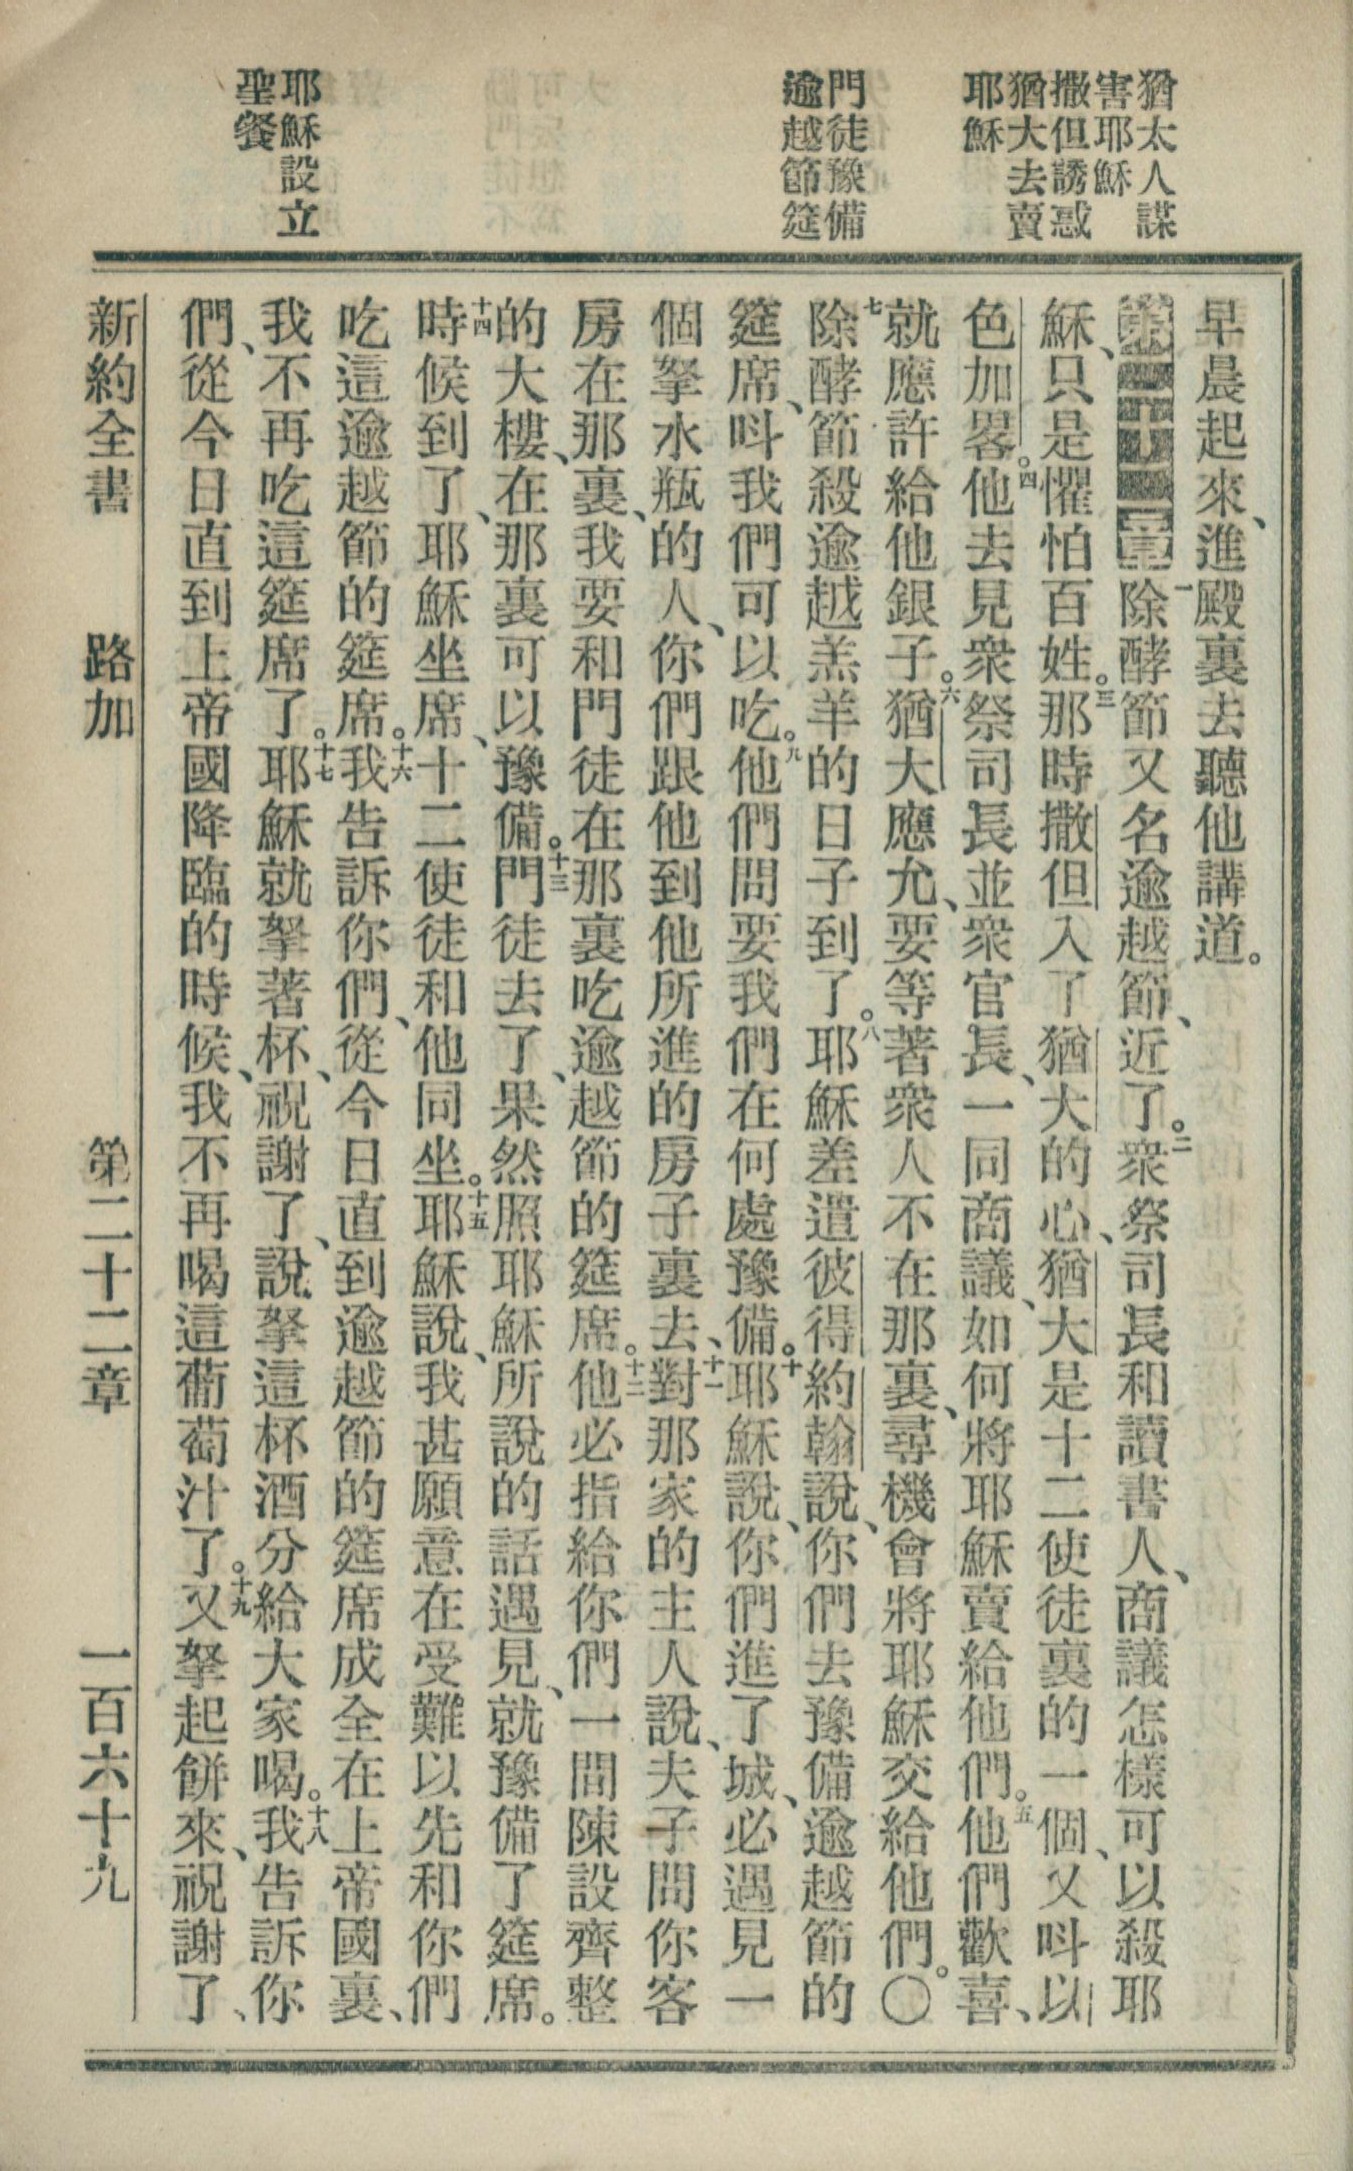 猶太人謀
害耶穌
撒但誘惑
猶大去賣
耶穌
門徒豫備
逾越節筵
耶穌設立
聖餐
早晨起來、進殿裏去聽他講道。
第二十二章一除酵節又名逾越節、近了。二衆祭司長和讀書人、商議怎樣可以殺耶
穌、只是懼怕百姓。三那時撒但入了猶大的心、猶大是十二使徒裏的一個、又呌以
色加畧。四他去見衆祭司長並衆官長、一同商議、如何將耶穌賣給他們。五他們歡喜、
就應許給他銀子。六猶大應允、要等著衆人不在那裏、尋機會將耶穌交給他們。〇
七除酵節殺逾越羔羊的日子到了。八耶穌差遣彼得約翰說、你們去豫備逾越節的
筵席、呌我們可以吃。九他們問要我們在何處豫備。十耶穌說、你們進了城、必遇見一
個拏水瓶的人、你們跟他到他所進的房子裏去、十一對那家的主人說、夫子問你客
房在那裏、我要和門徒在那裏吃逾越節的筵席。十二他必指給你們一間陳設齊整
的大樓、在那裏可以豫備。十三門徒去了、果然照耶穌所說的話遇見、就豫備了筵席。
十四時候到了、耶穌坐席、十二使徒和他同坐。十五耶穌說、我甚願意在受難以先和你們
吃這逾越節的筵席。十六我告訴你們、從今日直到逾越節的筵席成全在上帝國裏、
我不再吃這筵席了。十七耶穌就拏著杯、祝謝了、說、拏這杯酒分給大家喝。十八我告訴你
們、從今日直到上帝國降臨的時候、我不再喝這葡萄汁了。十九又拏起餅來、祝謝了、
新約全書 路加 第二十二章 一百六十九